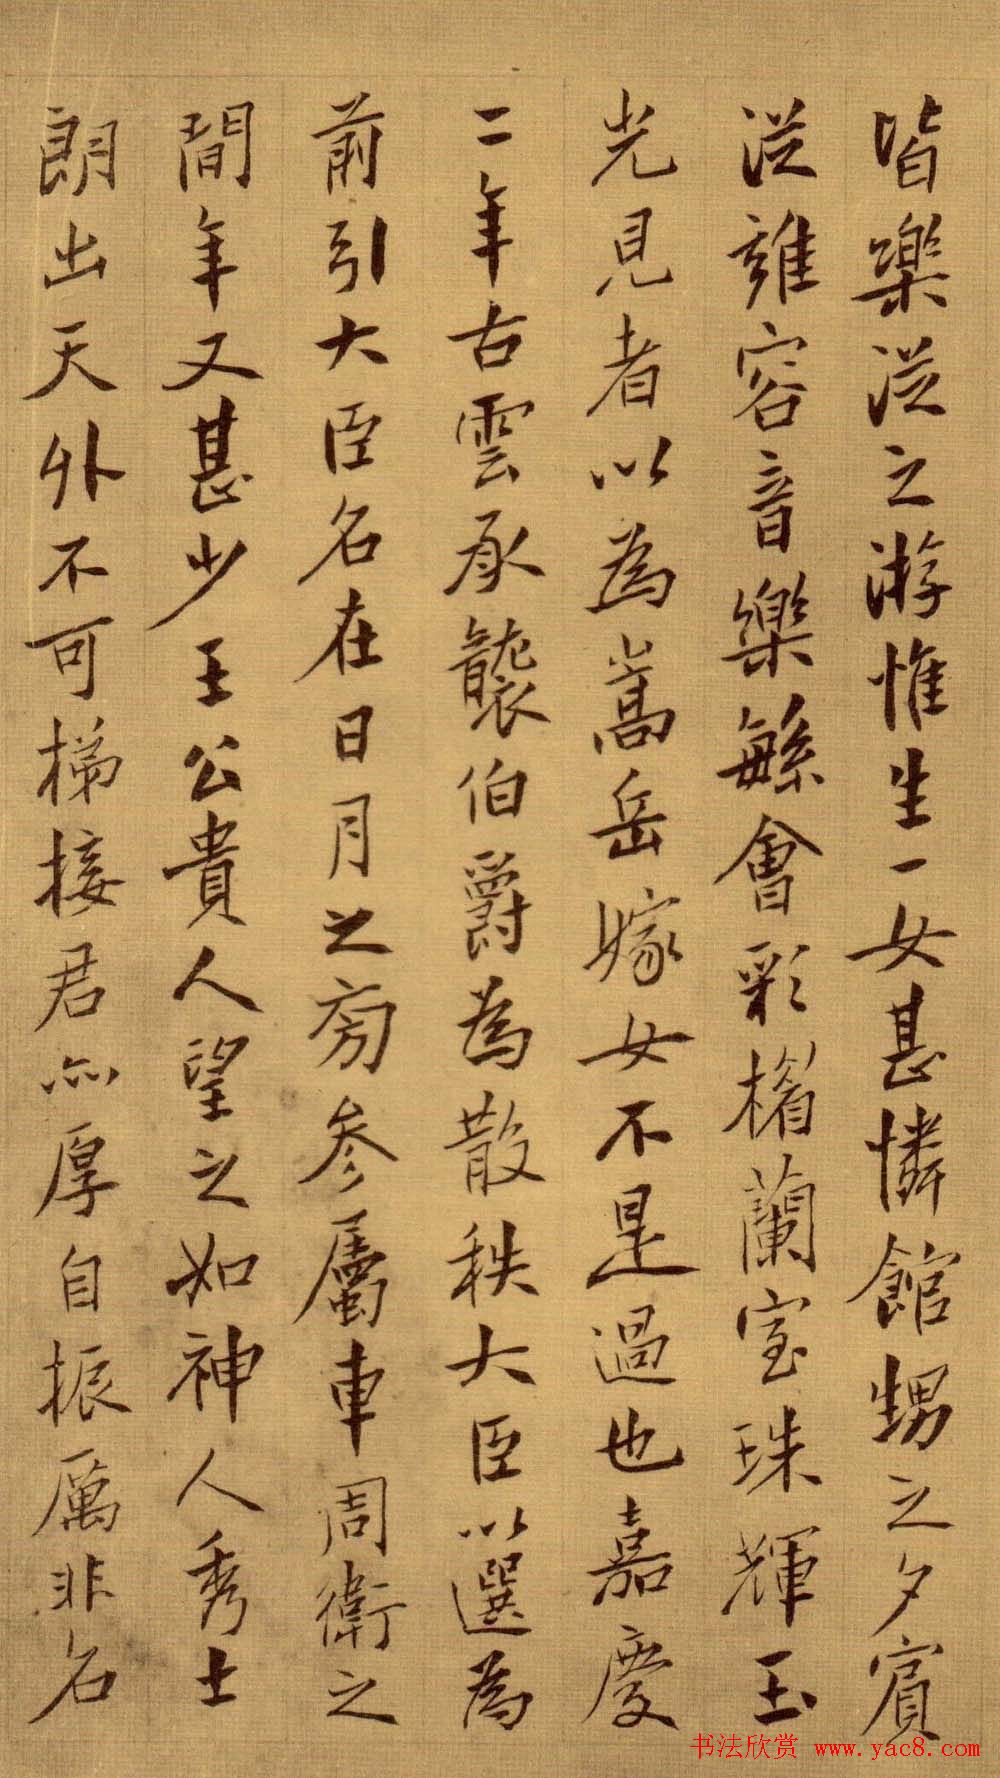 皆樂從之游惟生一女甚憐館甥之夕賓
從雍容音樂繇會彩楷蘭室珠輝玉
光見者以為嵩岳嫁女不是過也嘉慶
二年古雲承襲伯爵為散秩大臣以選為
前引大臣名在日月之旁參屬車周衛之
間年又甚少王公貴人望之如神人秀士
朗出天外不可梯接君亦厚自振厲非名
书法欣赏 www.yac8.com